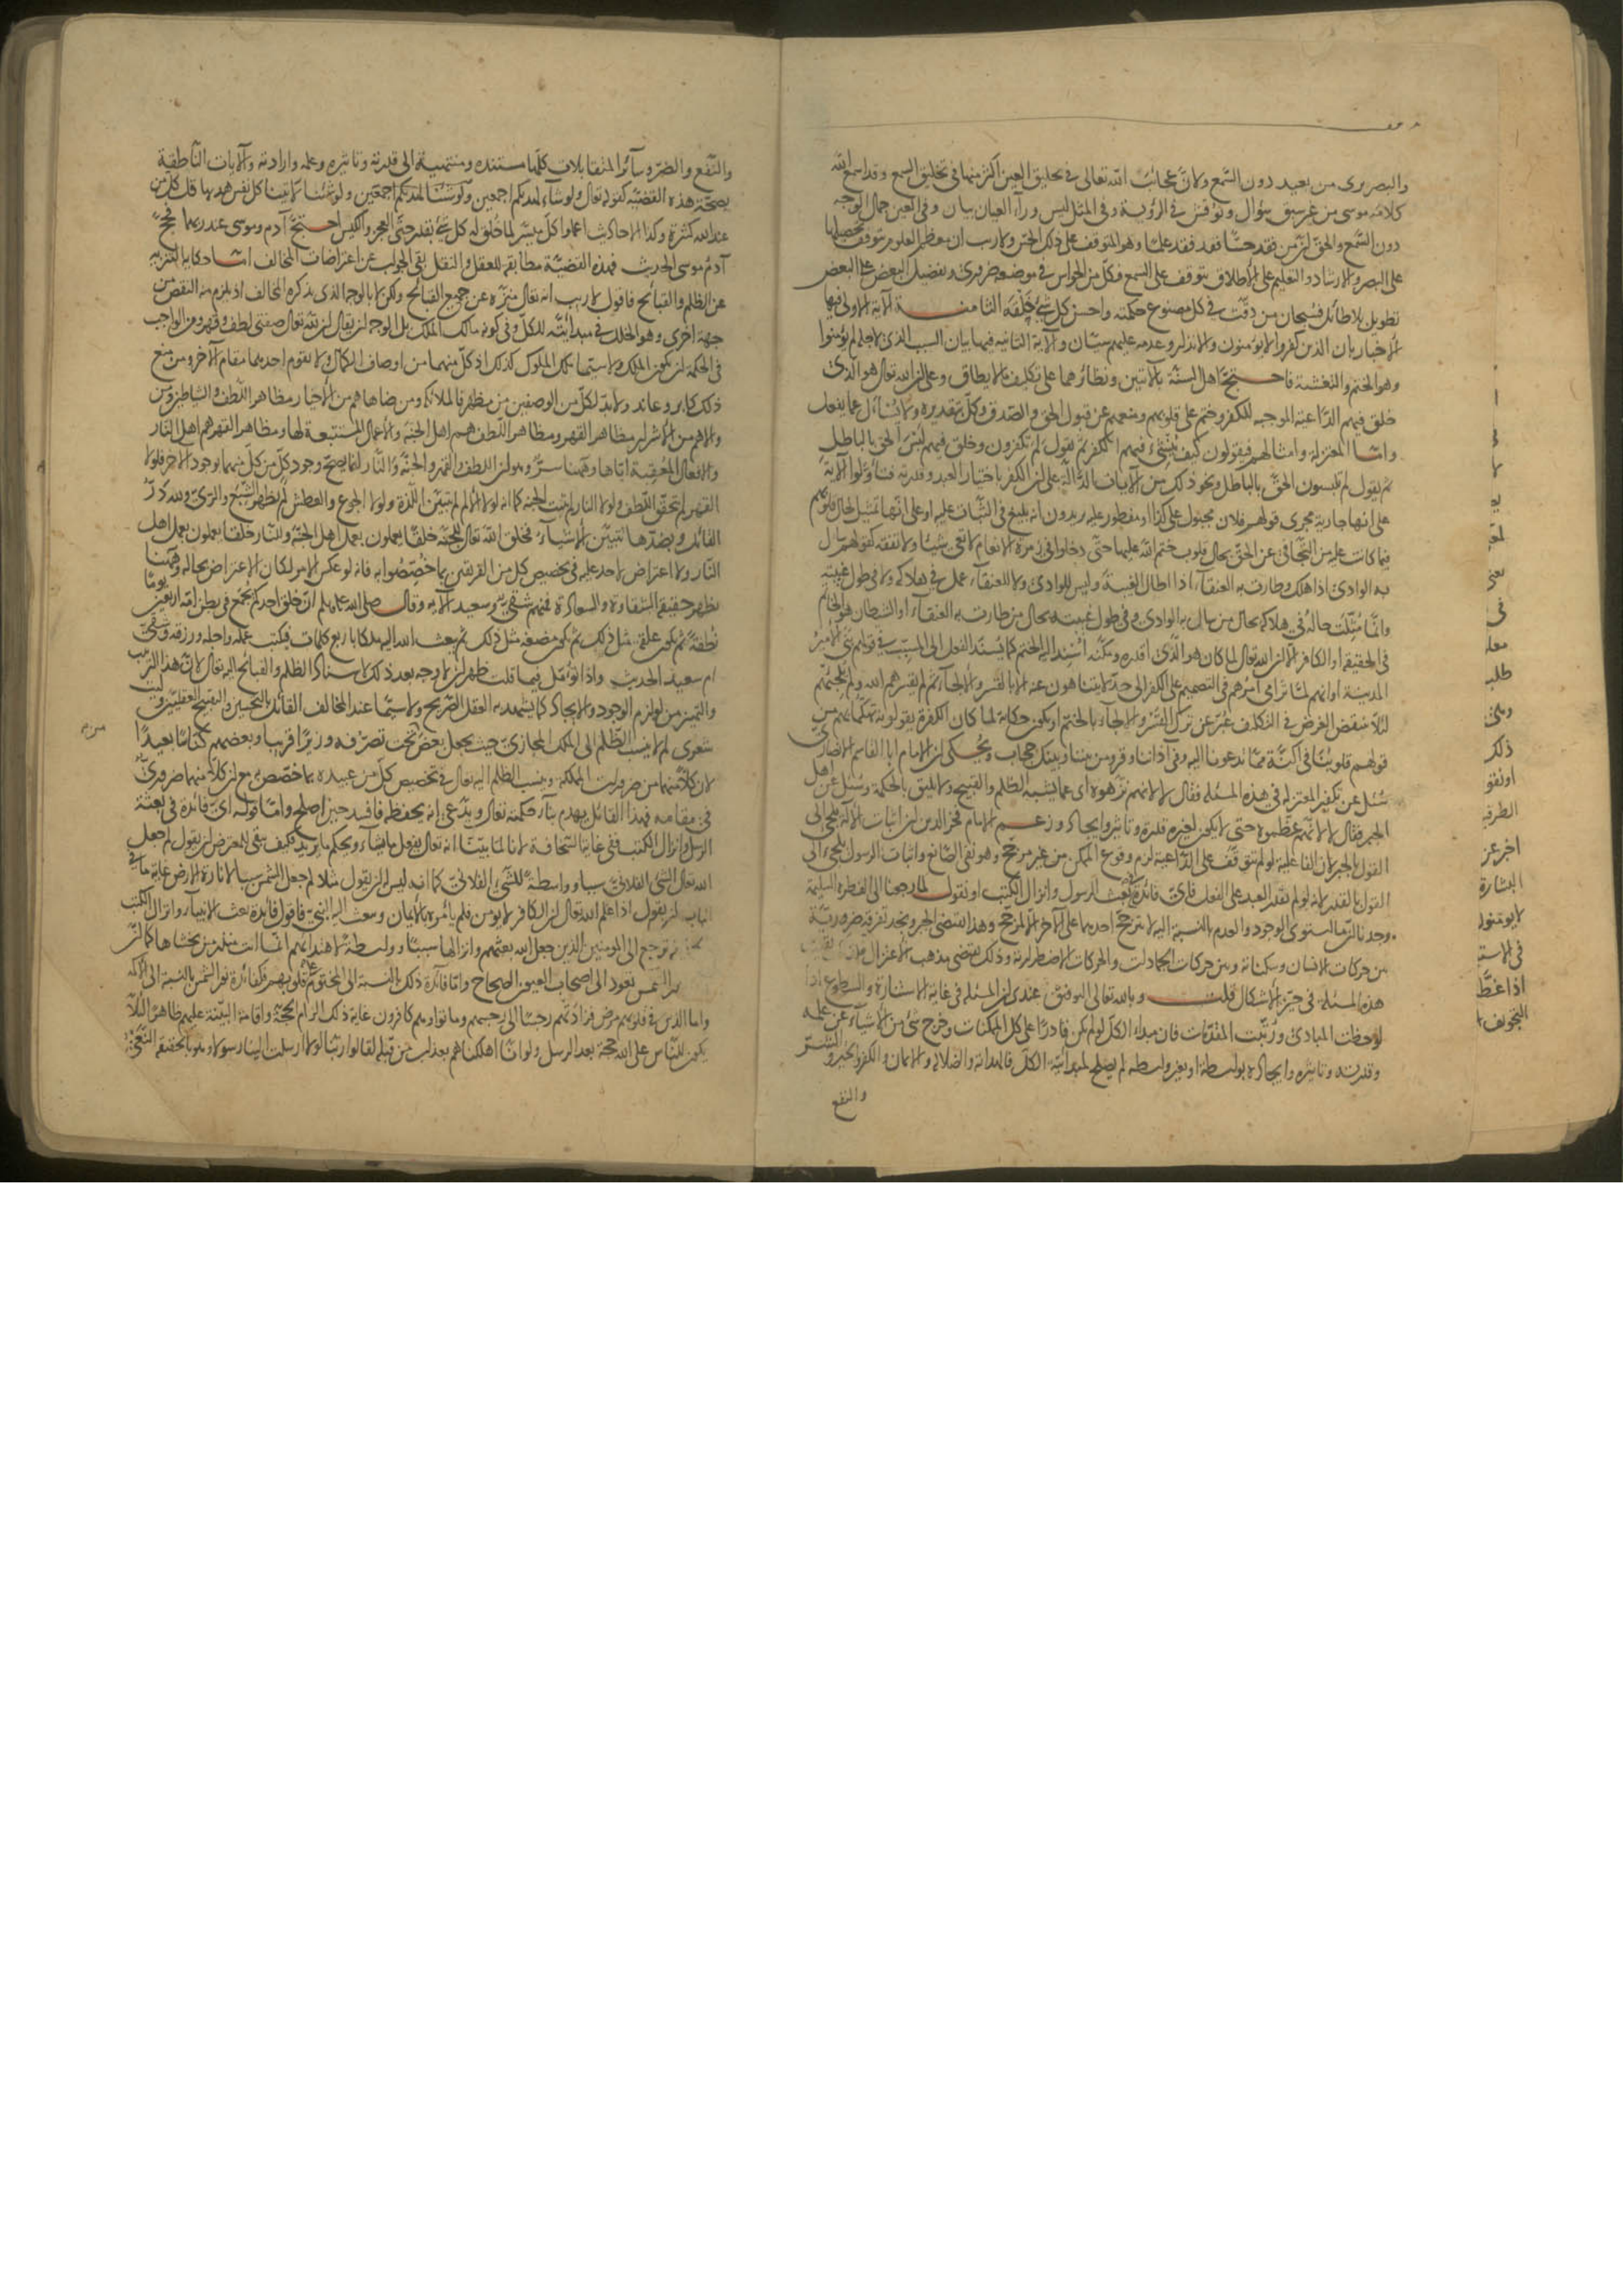 والبصر يرى من بعيد دون السمع ولان عجائب الله تعالى في تخليق العين أكثر منها في تخليق السمع وقد اسمع الله
كلامه موسى من غير سبق سؤال ونوقش في الرؤية وفي المثل ليس وراء العيان بيان وفي العين جمال الوجه
دون السمع والحق ان من فقد حسّا فقد فقد علما وهو المتوقف على ذلك الحس ولا ريب ان معظم العلوم يتوقف تحصيلها
على البصر والارشاد والتعليم على الاطلاق يتوقف على السمع فكل من الحواس في موضعه ضروري وتفضيل البعض على البعض
تطويل بلا طائل فسبحان من دقّت في كل مصنوع حكمته واحسن كل شيء خلقه الثامنة الآية الاولى فيها
الاخبار بان الذين كفروا لا يؤمنون والانذار وعدمه عليهم سيّان والآية الثانية فيها بيان السبب الذي لاجله لم يؤمنوا
وهو الختم والتغشية فاحتجّ اهل السنة بالآيتين ونظائرهما على تكليف ما لا يطاق وعلى ان الله تعالى هو الذي
خلق فيهم الداعية الموجبة للكفر وختم على قلوبهم ومنعهم عن قبول الحق والصدق وكلّ بتقديره ولا يُسأل عما يفعل
وامّا المعتزلة وامثالهم فيقولون كيف يُنشئ فيهم الكفر ثم يقول لم تكفرون وخلق فيهم لبس الحق بالباطل
ثم يقول لم تلبسون الحقّ بالباطل ونحو ذلك من الآيات الدالّة على ان الكفر باختيار العبد وقدرته فتأوّلوا الآية
على انها جارية مجرى قولهم فلان مجبول على كذا او مفطور عليه يريدون انه بليغ في الثبات عليه او على انها تمثيل لحال قلوبهم
فيما كانت عليه من التجافي عن الحق بحال قلوب ختم الله عليها حتّى دخلوا في زمرة الانعام لا تعي شيئا ولا تفقه كقولهم سال
به الوادي اذا هلك وطارت به العنقاء اذا اطال الغيبة وليس للوادي ولا للعنقاء عمل في هلاكه ولا في طول غيبته
وانما مُثّلت حاله في هلاكه بحال من سال به الوادي وفي طول غيبته بحال من طارت به العنقاء او الشيطان هو الخاتم
في الحقيقة او الكافر الّا ان الله تعالى لما كان هو الذي اقدره ومكّنه أُسند اليه الختم كما يُسند الفعل الى المسبّب في قولهم بنى الامير
المدينة او انهم لمّا ترامى امرهم في التصميم على الكفر الى حدّ لا يتناهون عنه الا بالقسر والالجاء ثم لم يقسرهم الله ولم يلجئهم
لئلّا ينتقض الغرض في التكليف عبّر عن ترك القسر والالجاء بالختم او يكون حكاية لما كان الكفرة يقولونه تهكّما بهم من
قولهم قلوبنا في أكنّة ممّا تدعونا اليه وفي آذاننا وقر ومن بيننا وبينك حجاب ويُحكى ان الامام ابا القاسم الانصاري
سُئل عن تكفير المعتزلة في هذه المسئلة فقال لا لانهم نزّهوه اي عما يشبه الظلم والقبيح ولا يليق بالحكمة وسُئل عن اهل
الجبر فقال لا لانهم عظّموه حتى لا يكون لغيره قدرة وتأثير وايجاد وزعم الامام فخر الدين ان اثبات الاله يلجئ الى
القول بالجبر لان الفاعلية لو لم تتوقّف على الداعية لزم وقوع الممكن من غير مرجح وهو نفي الصانع واثبات الرسول يلجئ الى
القول بالقدر لانه لو لم يقدر العبد على الفعل فايّ فائدة في بعث الرسول وانزال الكتب او نقول لما رجعنا الى الفطرة السليمة
وجدنا ان ما استوى الوجود والعدم بالنسبة اليه لا يترجّح احدهما على الآخر الا لمرجّح وهذا يقتضي الجبر ونجد تفرقة ضرورية
بين حركات الانسان وسكناته وبين حركات الجمادات والحركات الاضطرارية وذلك يقتضي مذهب الاعتزال فلذلك بقيت
هذه المسئلة في حيّز الاشكال قلت وبالله تعالى التوفيق عندي ان المسئلة في غاية الاستنارة والسطوع اذا
لوحظت المبادئ ورُتّبت المقدّمات فان مبدأ الكلّ لو لم يكن قادرًا على كل الممكنات وخرج شيء من الاشياء عن علمه
وقدرته وتأثيره وايجاده بواسطة او بغير واسطة لم يصلح لمبدائية الكلّ فالهداية والضلالة والايمان والكفر والخير والشّر
والنفع
والنّفع والضرّ وسائر المتقابلات كلّها مستندة ومنتهية الى قدرته وتأثيره وعلمه وارادته والآيات الناطقة
بصحّة هذه القضيّة كقوله تعالى ولو شاء لهديكم اجمعين ولو شئنا لآتينا كل نفس هديها قل كل من
عند الله كثيرة وكذا الاحاديث اعملوا كلّ ميسّر لما خُلق له كل شيء بقدر حتّى العجز والكيس احتجّ آدم وموسى عند ربهما فحجّ
آدمُ موسى الحديث فهذه القضيّة مطابقة للعقل والنقل بقي الجواب عن اعتراضات المخالف امّا حكاية التنزيه
عن الظلم والقبائح فاقول لا ريب انه تعالى منزّه عن جميع القبائح ولكن لا بالوجه الذي يذكره المخالف اذ يلزم منه النقص من
جهة اخرى وهو الخلل في مبدائيّته للكلّ وفي كونه مالك الملك بل الوجه ان يقال ان لله تعالى صفتي لطف وقهر ومن الواجب
في الحكمة ان يكون الملك ولا سيّما ملك الملوك كذلك اذ كلّ منهما من اوصاف الكمال ولا يقوم احدهما مقام الآخر ومن منع
ذلك كابر وعاند ولا بدّ لكلّ من الوصفين من مظهر فالملائكة ومن ضاهاهم من الاخيار مظاهر اللطف والشياطين ومن
والاهم من الاشرار مظاهر القهر ومظاهر اللطف هم اهل الجنة والاعمال المستتبعة لها ومظاهر القهر هم اهل النار
والافعال المعقبة اياها وههنا سرّ وهو ان اللطف والقهر والجنّة والنّار انما يصحّ وجود كلّ من كلّ منهما بوجود الآخر فلولا
القهر لم يتحقّق اللطف ولولا النار لم تثبت الجنة كما انه لولا الالم لم تتبيّن اللذة ولولا الجوع والعطش لم يظهر الشبع والريّ ولله درّ
القائل وبضدّها تتبيّن الاشياء فخلق الله تعالى للجنّة خلقًا يعملون بعمل اهل الجنّة وللنّار خلقًا يعملون بعمل اهل
النّار ولا اعتراض لاحد عليه في تخصيص كل من الفريقين بما خُصّصوا به فانه لو عكس الامر لكان الاعتراض بحاله وههنا
تظهر حقيقة الشقاوة والسعادة فمنهم شقيّ وسعيد الآية وقال صلى الله عليه وسلم انّ خلق احدكم يُجمع في بطن امه اربعين يومًا
نطفةً ثم يكون علقة مثل ذلك ثم يكون مضغة مثل ذلك ثم يبعث الله اليه ملكا باربع كلمات فيكتب عمله واجله ورزقه وشقيّ
ام سعيد الحديث واذا تؤمّل فيما قلت ظهر ان لا وجه بعد ذلك لاسناد الظلم والقبائح اليه تعالى لانّ هذا الترتيب
والتميز من لوازم الوجود والايجاد كما يشهد به العقل الصّريح ولا سيّما عند المخالف القائل بالتحسين والتقبيح العقليّين وليت
شعري لم لا ينسب الظلم الى الملك المجازيّ حيث يجعل بعض من تحت تصرّفه وزيرًا قريبا وبعضهم كنّاسًا بعيدًا
لان كلاّ منهما من ضرورات المملكة وينسب الظلم اليه تعالى في تخصيص كلّ من عبيده بما خصّص به مع ان كلّا منهما ضروريّ
في مقامه فهذا القائل يهدم بناء حكمته تعالى ويدّعي انه يحفظه فافسد حين اصلح وامّا قوله ايّ فائدة في بعثة
الرسل وانزال الكتب ففي غاية السّخافة لانا لمّا بيّنّا انه تعالى يفعل ما يشاء ويحكم ما يريد فكيف يبقى للمعترض ان يقول لم جعل
الله تعالى الشيء الفلانيّ سببا وواسطة للشيء الفلانيّ كما انه ليس له ان يقول مثلا لم جعل الشمس سببا لانارة الارض غاية ما في
الباب ان يقول اذا علم الله تعالى ان الكافر لا يؤمن فلم يأمره بالايمان ويبعث اليه النبيّ فاقول فائدة بعث الانبياء وانزال الكتب
ترجع الى المؤمنين الذين جعل الله بعثهم وانزالها سببًا وواسطة لاهتدائهم انما انت منذر من يخشاها كما انّ
الشمس تعود الى اصحاب العيون الصحاح وامّا فائدة ذلك بالنسبة الى المختوم على قلوبهم فكفائدة نور الشمس بالنسبة الى الاكمه
واما الذين في قلوبهم مرض فزادتهم رجسًا الى رجسهم وماتوا وهم كافرون غاية ذلك الزام الحجّة واقامة البيّنة عليهم ظاهرًا لئلّا
يكون للنّاس على الله حجة بعد الرسل ولو انّا اهلكناهم بعذاب من قبله لقالوا ربّنا لولا ارسلت الينا رسولا وهو بالحقيقة النعي
لا
يعني
في
معا
طلب
ذلك
الطرف
اخر عن
البشارة
لا يؤمنون
اذا غطّ
التجويف